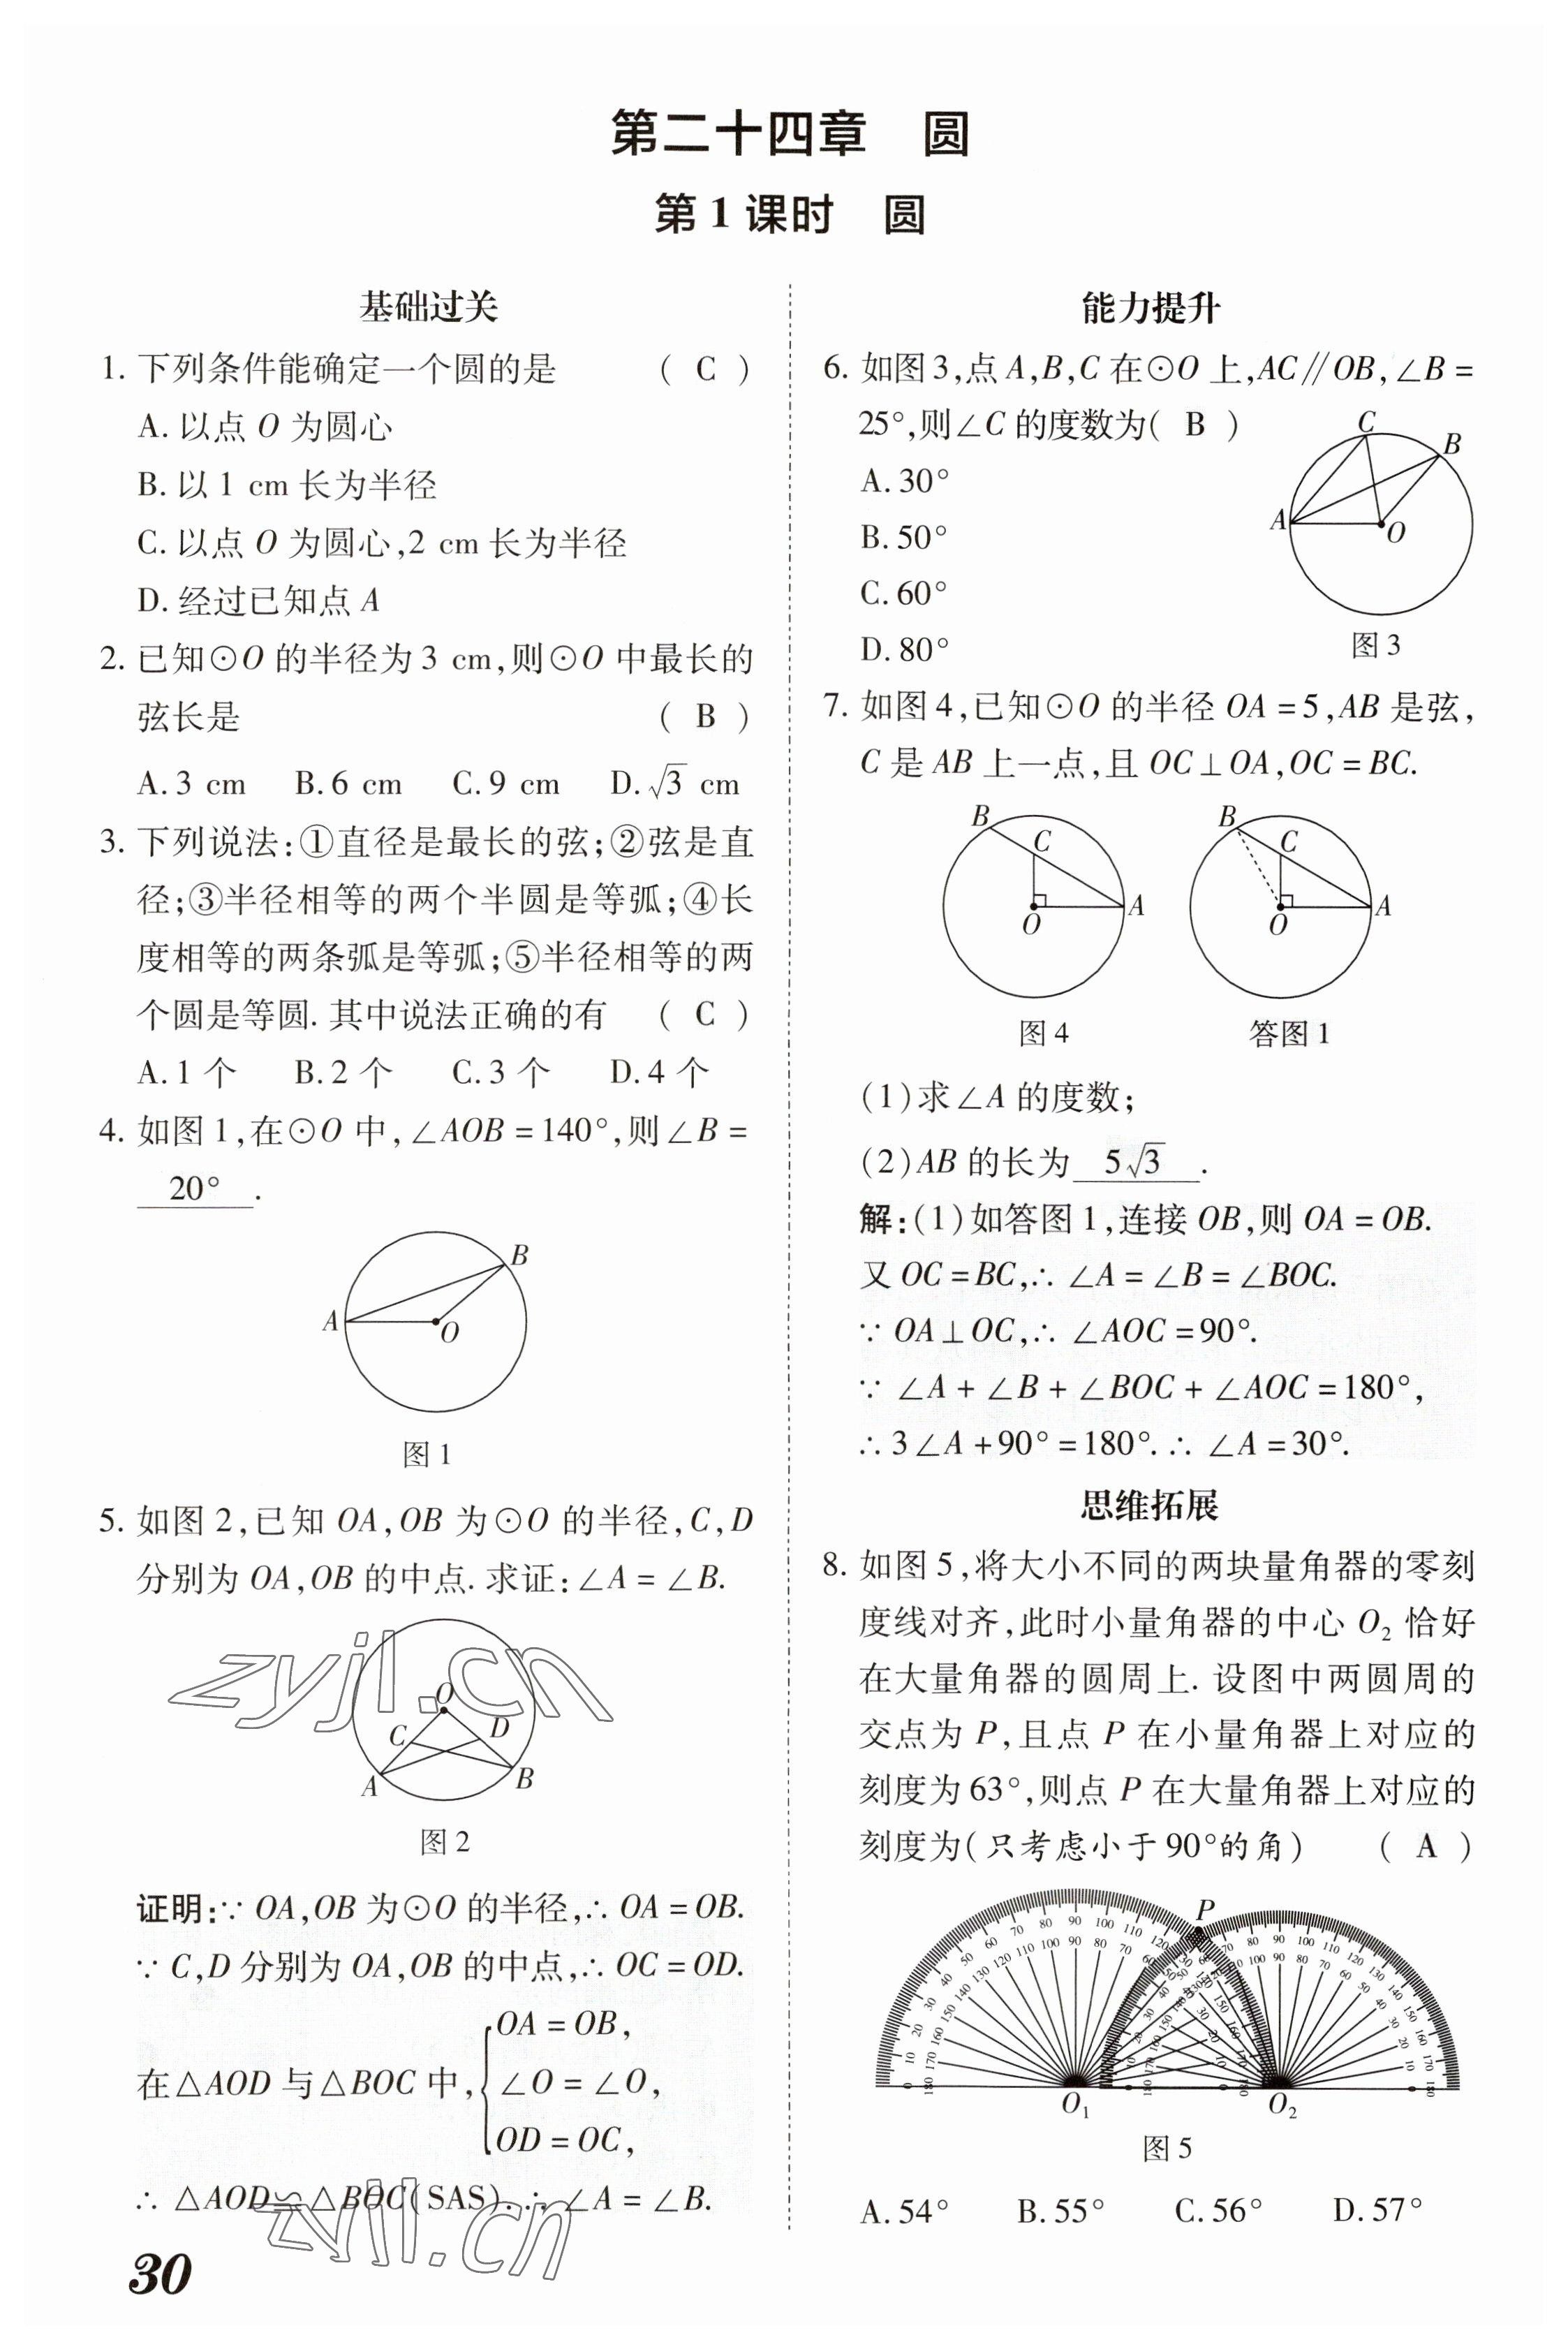 第二十四章 圆
第1课时 圆
基础过关
1. 下列条件能确定一个圆的是 ( C )
A. 以点 O 为圆心
B. 以 1 cm 长为半径
C. 以点 O 为圆心,2 cm 长为半径
D. 经过已知点 A
2. 已知⊙O 的半径为 3 cm,则⊙O 中最长的
弦长是 ( B )
A. 3 cm B. 6 cm C. 9 cm D. √3 cm
3. 下列说法:①直径是最长的弦;②弦是直
径;③半径相等的两个半圆是等弧;④长
度相等的两条弧是等弧;⑤半径相等的两
个圆是等圆. 其中说法正确的有 ( C )
A. 1 个 B. 2 个 C. 3 个 D. 4 个
4. 如图 1,在⊙O 中,∠AOB = 140°,则∠B =
20° .
A B O
图 1
5. 如图 2,已知 OA,OB 为⊙O 的半径,C,D
分别为 OA,OB 的中点. 求证:∠A = ∠B.
zyjl.cn
O C D A B
图 2
证明:∵ OA,OB 为⊙O 的半径,∴ OA = OB.
∵ C,D 分别为 OA,OB 的中点,∴ OC = OD.
在△AOD 与△BOC 中,
OA = OB,
∠O = ∠O,
OD = OC,
∴ △AOD≌△BOC(SAS). ∴ ∠A = ∠B.
zyjl.cn
30
能力提升
6. 如图 3,点 A,B,C 在⊙O 上,AC∥OB,∠B =
25°,则∠C 的度数为( B )
A. 30°
B. 50°
C. 60°
D. 80°
C B A O
图 3
7. 如图 4,已知⊙O 的半径 OA = 5,AB 是弦,
C 是 AB 上一点,且 OC⊥OA,OC = BC.
B C O A
B C O A
图 4 答图 1
(1)求∠A 的度数;
(2)AB 的长为 5√3 .
解:(1)如答图 1,连接 OB,则 OA = OB.
又 OC = BC,∴ ∠A = ∠B = ∠BOC.
∵ OA⊥OC,∴ ∠AOC = 90°.
∵ ∠A + ∠B + ∠BOC + ∠AOC = 180°,
∴ 3∠A + 90° = 180°. ∴ ∠A = 30°.
思维拓展
8. 如图 5,将大小不同的两块量角器的零刻
度线对齐,此时小量角器的中心 O₂ 恰好
在大量角器的圆周上. 设图中两圆周的
交点为 P,且点 P 在小量角器上对应的
刻度为 63°,则点 P 在大量角器上对应的
刻度为(只考虑小于 90°的角) ( A )
P
O₁ O₂
图 5
A. 54° B. 55° C. 56° D. 57°